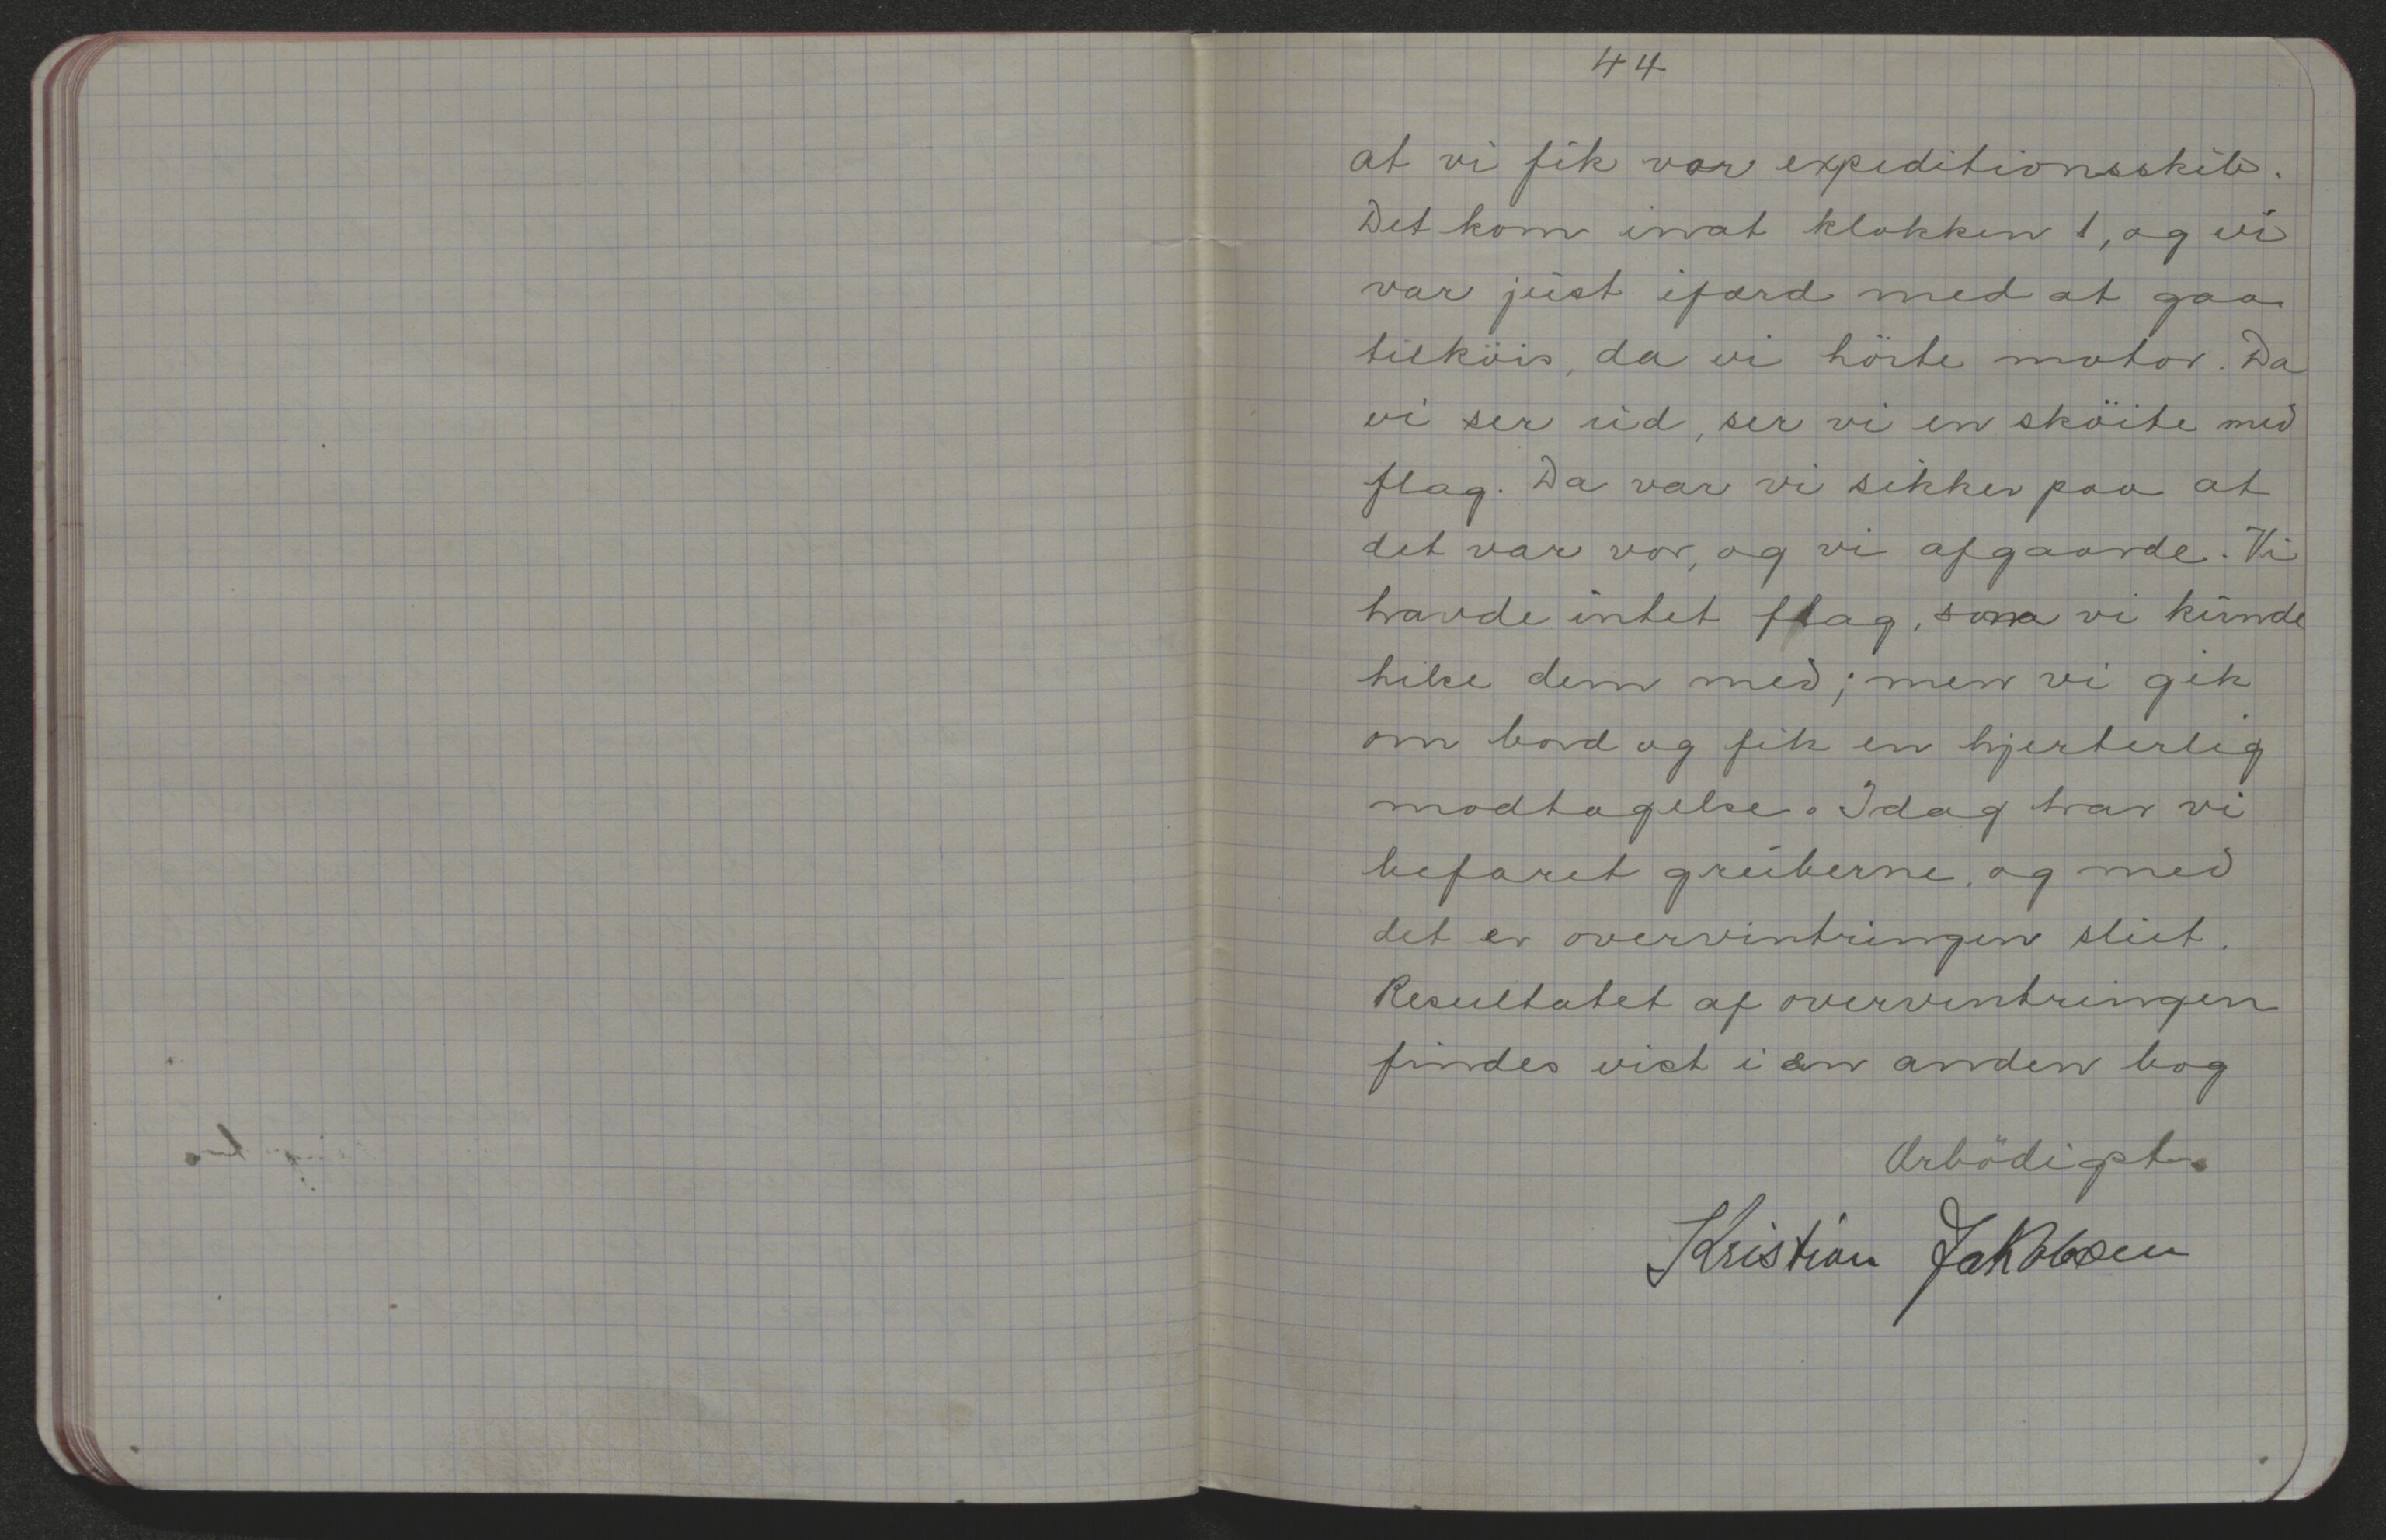 44
at vi fik vor expeditionsskib.
Det kom inat klokken 1, og vi
var just ifærd med at gaa
tilköis, da vi hörte motor. Da
vi ser ud, ser vi en sköite med
flag. Da var vi sikker paa at
det var vor, og vi afgaarde. Vi
havde intet flag, som vi kunde
hilse dem med; men vi gik
om bord og fik en hjerterlig
modtagelse. Idag har vi
befaret gruberne, og med
det er overvintringen slut.
Resultatet af overvintringen
findes vist i en anden bog
Ærbödigst
Kristian Jakobsen